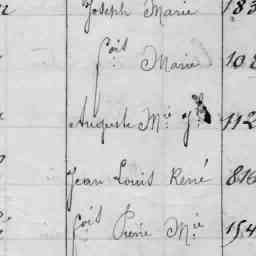 Joseph Marie 183
fois Marie 108
Auguste M.ie J.h 112
Jean Louis René 816
fois Pierre M.ie 154